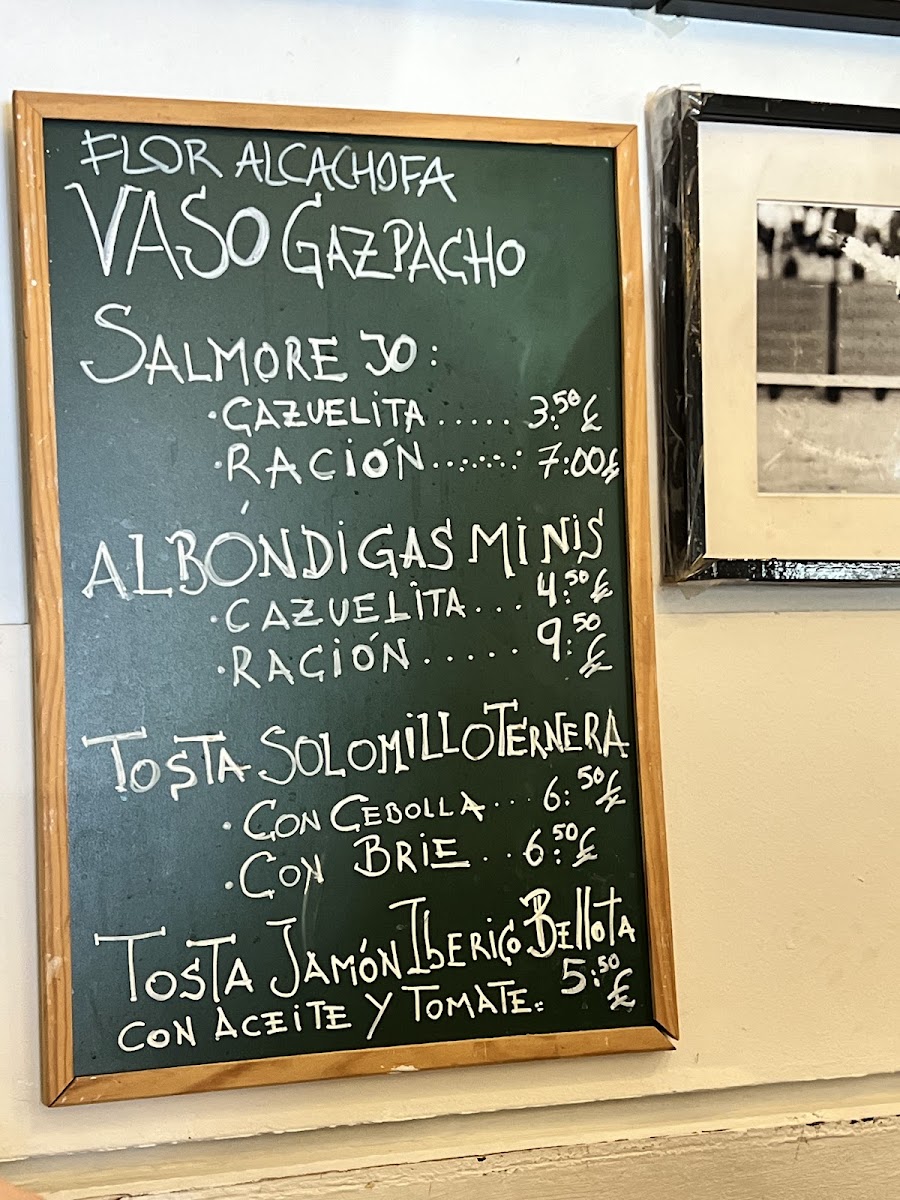 FLOR ALCACHOFA
VASO GAZPACHO
SALMOREJO:
·CAZUELITA..... 3.50 €
·RACIÓN........: 7:00€
ALBÓNDIGAS MINIS
·CAZUELITA... 4.50 €
·RACIÓN..... 9.50 €
TOSTA SOLOMILLO TERNERA
·CON CEBOLLA... 6:50 €
·CON BRIE.. 6.50 €
TOSTA JAMÓN IBERICO BELLOTA
CON ACEITE Y TOMATE: 5:50 €